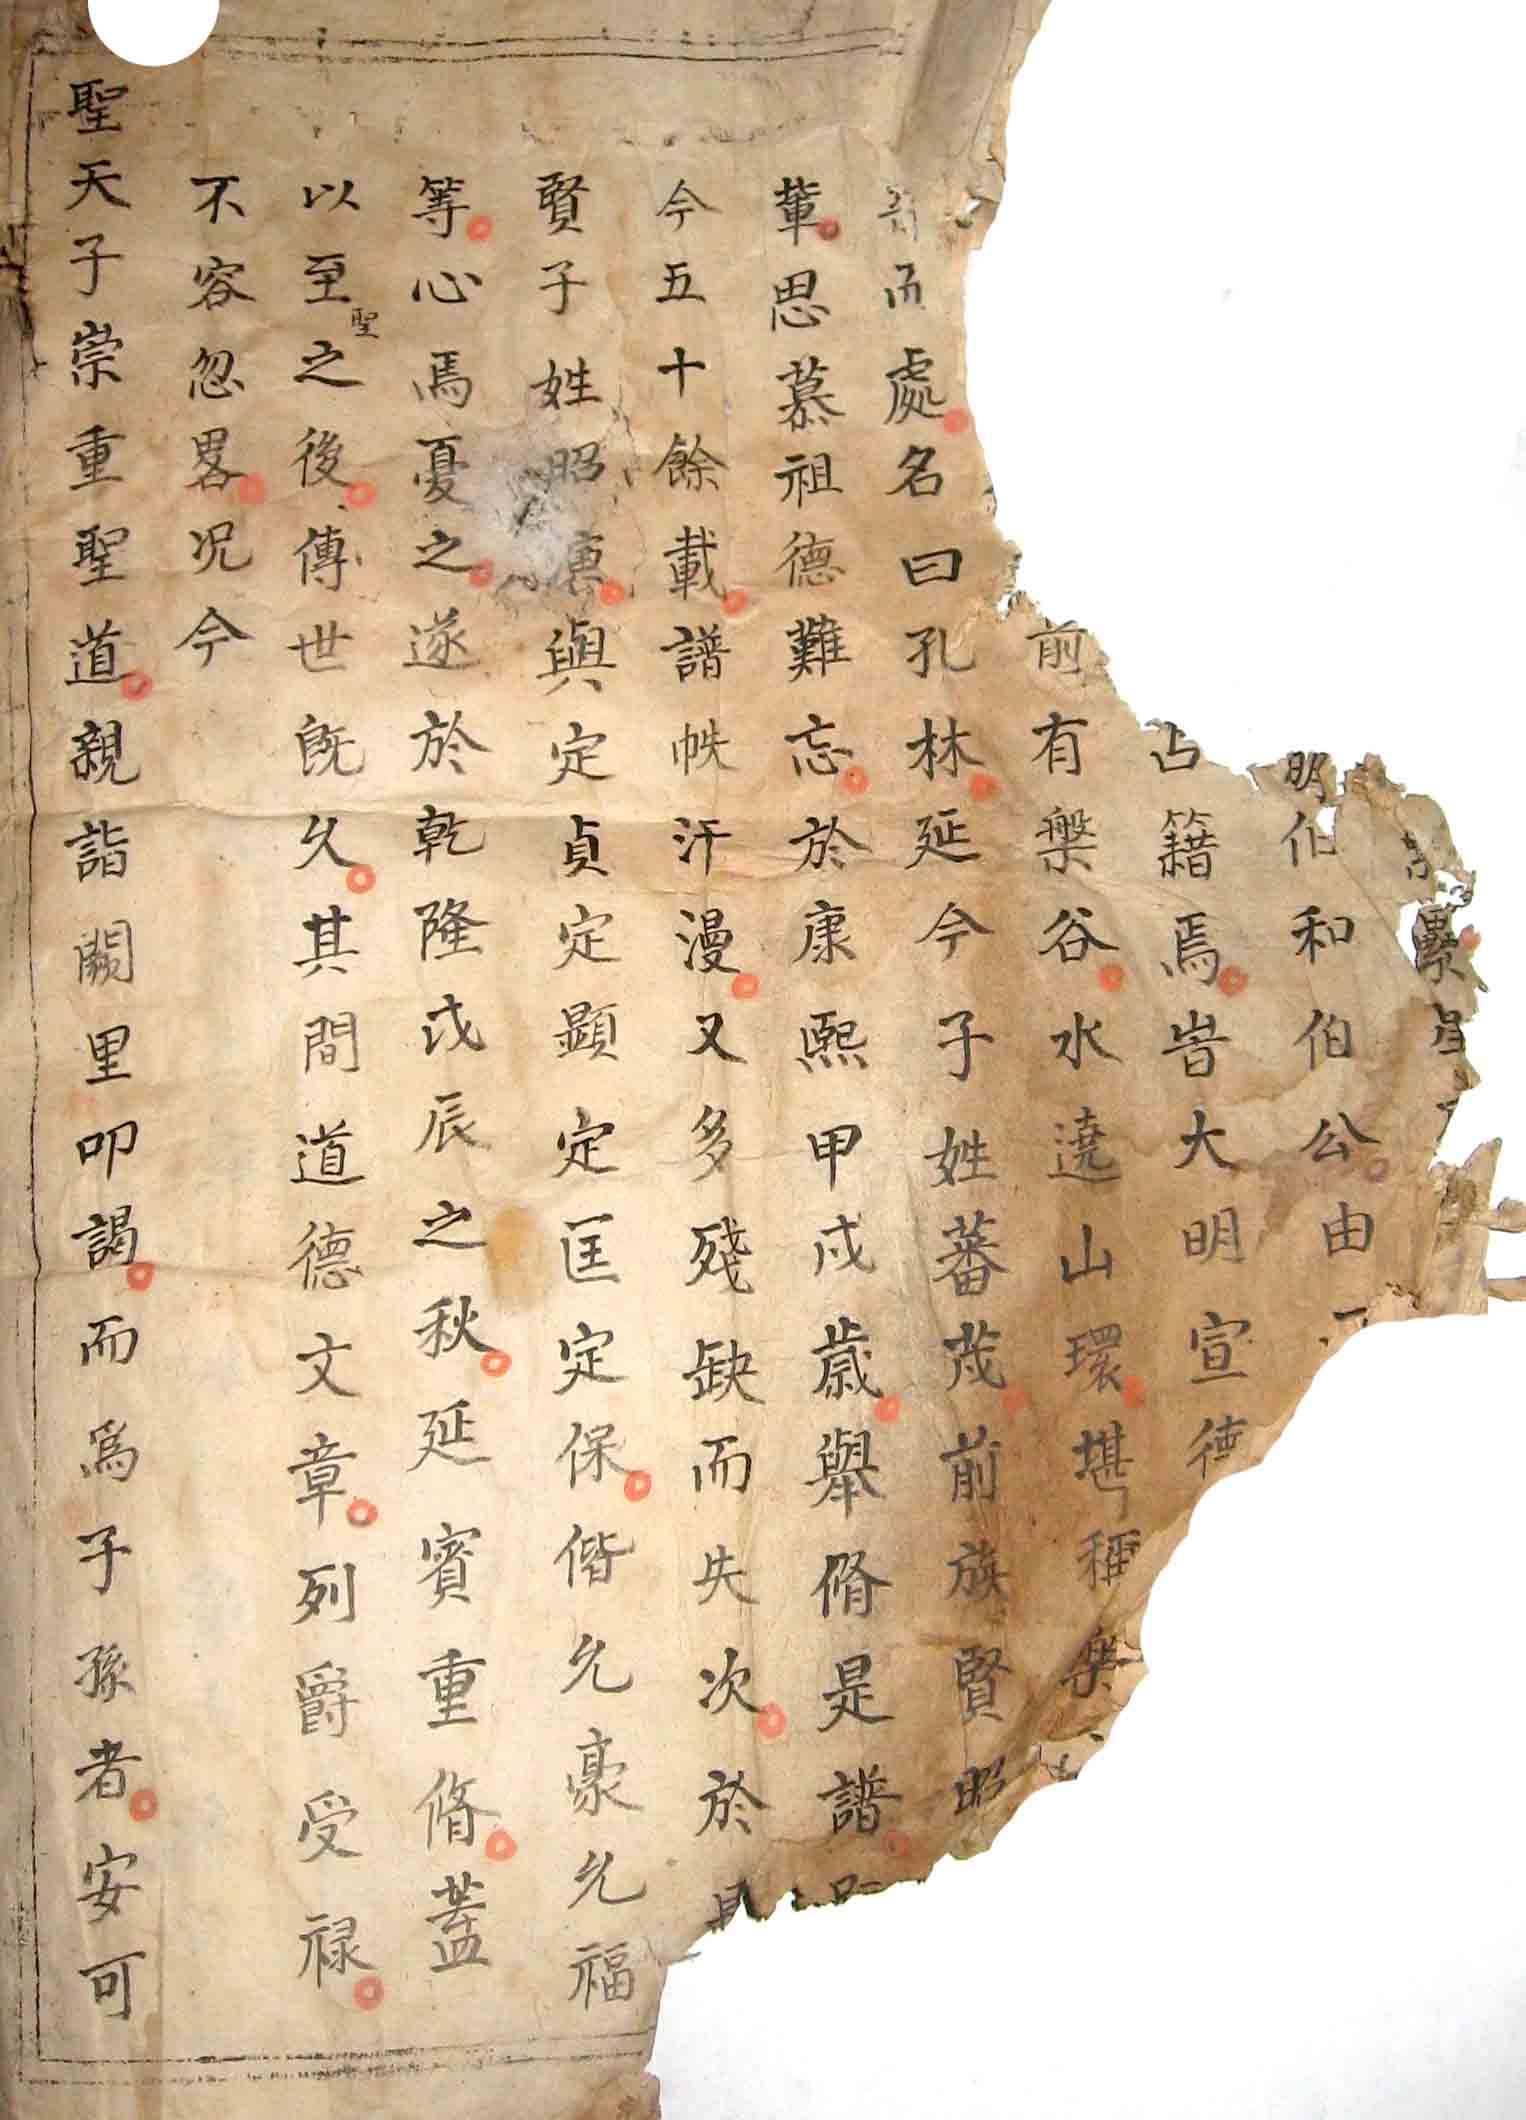 明伯和伯公由
占籍焉昔大明宣德
前有槃谷水遶山環堪稱樂
而處名曰孔林延今子姓蕃茂前族賢昭
輩思慕祖德難忘於康熙甲戌歲舉脩是譜
今五十餘載譜帙汗漫又多殘缺而失次於
賢子姓昭與定貞定顯定匡定保偕允豪允福
等心焉憂之遂於乾隆戊辰之秋延賓重脩蓋
以至聖之後傳世旣久其間道德文章列爵受禄
不容忽畧况今
聖天子崇重聖道親詣闕里叩謁而爲子孫者安可